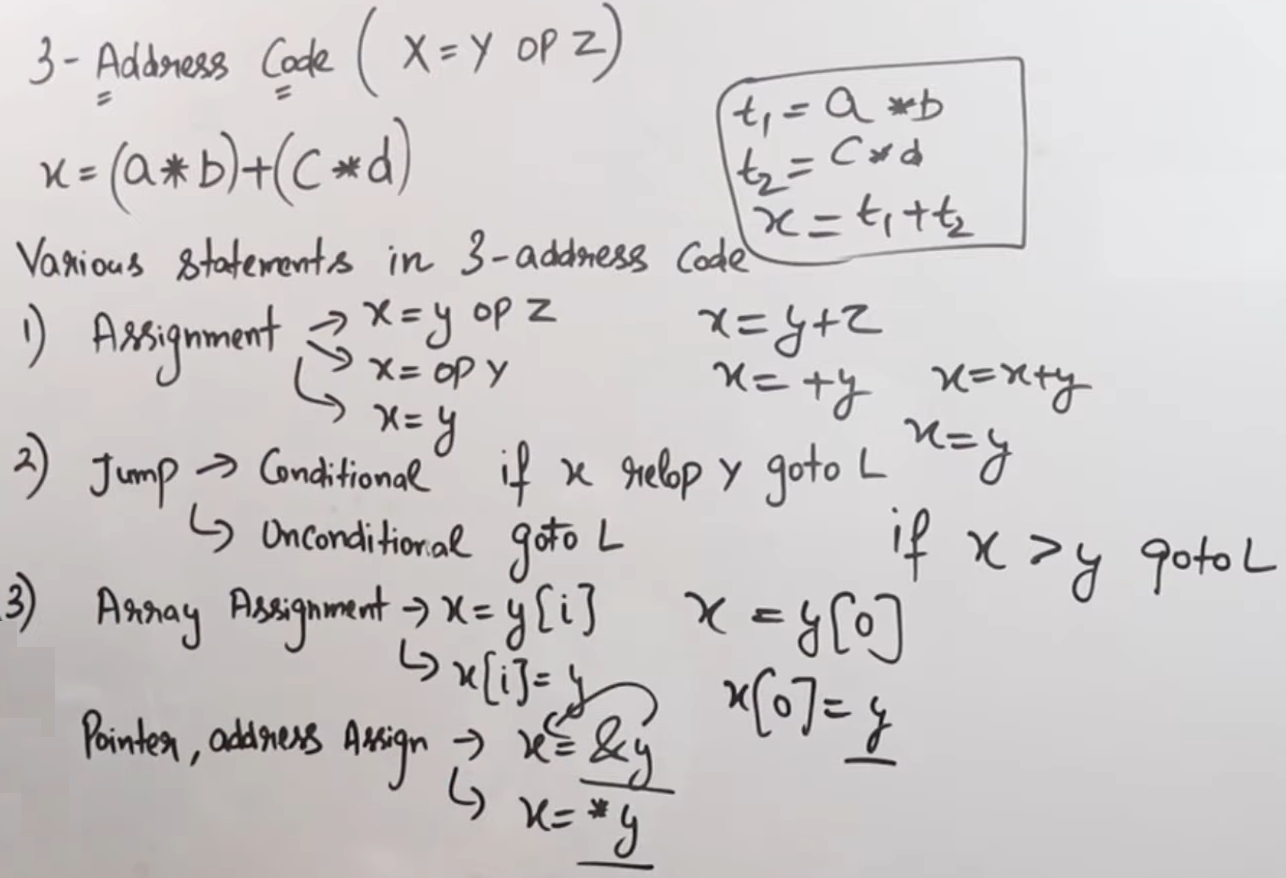 3- Address Code ( X = Y OP Z )
x = (a * b) + (c * d)
t₁ = a * b
t₂ = c * d
x = t₁ + t₂
Various statements in 3-address Code
1) Assignment → x = y op z
x = y + z
↘ x = op y
x = +y x = x+y
↳ x = y
x = y
2) Jump → Conditional if x relop y goto L
↳ Unconditional goto L
if x > y goto L
3) Array Assignment → x = y[i]
x = y[0]
↳ x[i] = y
x[0] = y
Pointer, address Assign → x = &y
↳ x = *y